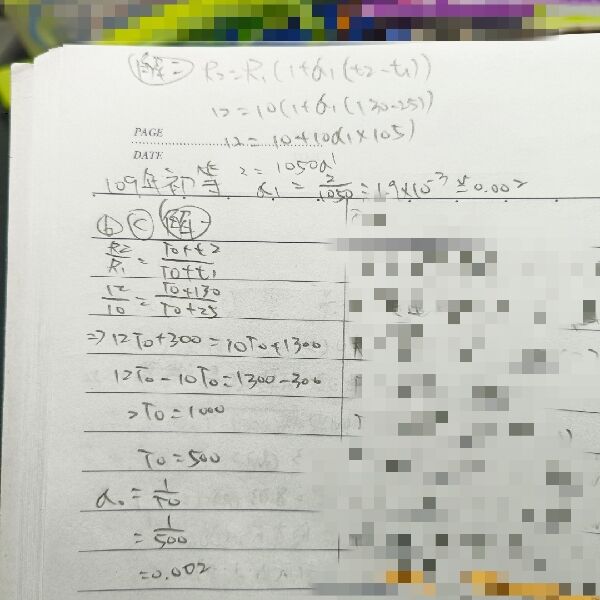 解二 R2=R1(1+α1(t2-t1))
12=10(1+α1(130-25))
PAGE
12=10+10α1×105)
DATE
2=1050α1
109年初等 α1=2/1050=1.9×10^-3≒0.002
ⓑ ⓒ 解一
R2/R1=T0+t2/T0+t1
12/10=T0+130/T0+25
⇒12T0+300=10T0+1300
12T0-10T0=1300-300
2T0=1000
T0=500
α0=1/T0
=1/500
=0.002